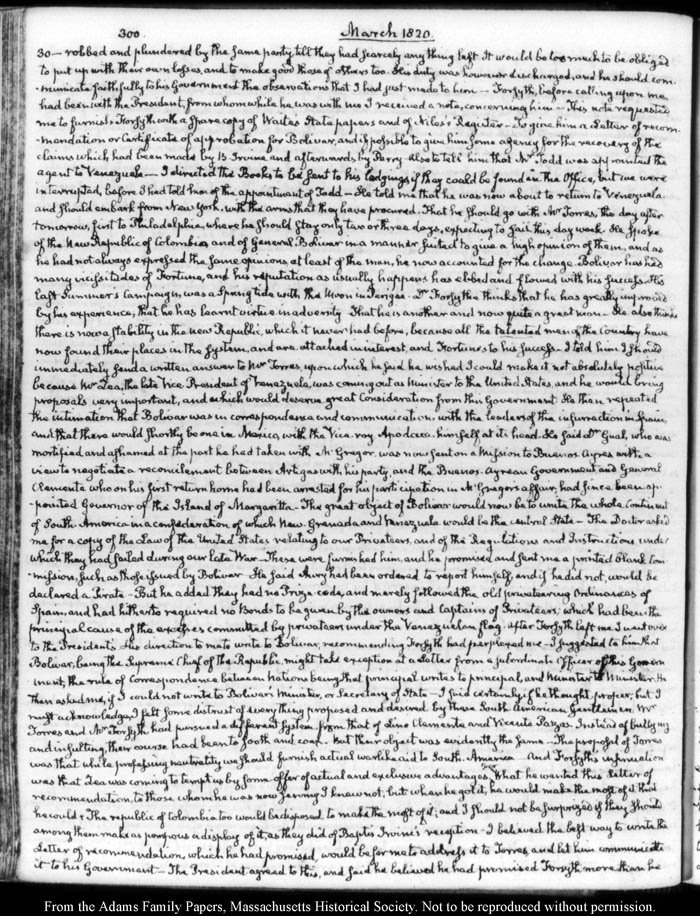 300 March 1820.
30 — robbed and plundered by the same party, till they had scarcely any thing left. It would be too much to be obliged
to put up with their own losses, and to make good those of others too. His duty was however discharged, and he should com-
-municate faithfully to his Government the observations that I had just made to him — Forsyth, before calling upon me
had been with the President, from whom while he was with me I received a note, concerning him — This note requested
me to furnish Forsyth with a spare copy of Waite's State papers and of Niles's Register — To give him a Letter of recom-
-mendation or Certificate of approbation for Bolivar, and if possible to give him some agency for the recovery of the
claims which had been made by B Irvine and afterwards by Perry — Also to tell him that Mr Todd was appointed the
agent to Venezuela — I directed the Books to be sent to his lodgings if they could be found in the Office, but we were
interrupted, before I had told him of the appointment of Todd — He told me that he was now about to return to Venezuela
and should embark from New York with the arms that they have procured. That he should go with Mr Torres, the day after
tomorrow, first to Philadelphia, where he should stay only two or three days, expecting to sail this day week. He spoke
of the New Republic of Colombia, and of General Bolivar in a manner suited to give a high opinion of them, and as
he had not always expressed the same opinions, at least of the man, he now accounted for the change. Bolivar has had
many vicissitudes of Fortune, and his reputation as usually happens has ebbed and flowed with his success. His
last Summer's Campaign, was a Spring tide with the Moon in Perigee. Dr Forsythe thinks that he has greatly improved
by his experience, that he has learnt virtue in adversity. That he is another and now quite a great man — He also thinks
there is now a stability in the new Republic, which it never had before, because all the talented men of the Country have
now found their places in the System, and are attached in interest, and Fortune to his success — I told him I should
immediately send a written answer to Mr Torres, upon which he said he wished I could make it not absolutely positive
because Mr Zea, the late Vice President of Venezuela, was coming out as Minister to the United States, and he would bring
proposals very important, and which would deserve great Consideration from this Government. He then repeated
the intimation that Bolivar was in correspondence and communication with the leaders of the insurrection in Spain
and that there would shortly be one in Mexico, with the Vice-roy Apodaca himself at its head. He said Dr Gual, who was
mortified and ashamed at the part he had taken with McGregor, was now sent on a Mission to Buenos Ayres with a
view to negotiate a reconcilement between Artigas with his party, and the Buenos-Ayrean Government and General
Clemente who on his first return home had been arrested for his participation in McGregor's affair, had since been ap-
-pointed Governor of the Island of Margaritta — The great object of Bolivar would now be to unite the whole Continent
of South America in a confederation of which New Granada and Venezuela would be the central State — The Doctor asked
me for a copy of the Law of the United States relating to our Privateers, and of the Regulations and Instructions under
which they had sailed during our late War — These were furnished him, and he promised and sent me a printed blank Com-
-mission, such as those issued by Bolivar — He said Aury had been ordered to report himself, and if he did not, would be
declared a Pirate — But he added they had no Prize-code, and merely followed the old privateering Ordinances of
Spain, and had hitherto required no Bonds to be given by the owners and Captains of Privateers, which had been the
principal cause of the excesses committed by privateers under the Venezuelan flag. After Forsyth left me I went over
to the President's. His direction to me to write to Bolivar, recommending Forsyth had perplexed me — I suggested to him that
Bolivar, being the Supreme Chief of the Republic might take exception at a Letter from a subordinate Officer of this Govern-
-ment, the rule of Correspondence between Nations being that principal writes to principal, and Minister to Minister. He
then asked me, if I could not write to Bolivar's Minister, or Secretary of State — I said certainly if he thought proper; but I
must acknowledge, I felt some distrust of every thing proposed and desired by these South American Gentlemen. Mr
Torres and Mr Forsyth had pursued a different System from that of Lino Clemente and Vicente Pazos. Instead of bullying
and insulting, their course had been to sooth and coax. But their object was evidently the same — The proposal of Torres
was that while professing neutrality we should furnish actual warlike aid to South-America — And Forsyth's insinuation
was that Zea was coming to tempt us by some offer of actual and exclusive advantages. What he wanted this letter of
recommendation, to those whom he was now serving I knew not, but when he got it, he would make the most of it that
he could. The republic of Colombia too would be disposed, to make the most of it; and I should not be surprized if they should
among them make as pompous a display of it, as they did of Baptis Irvine's reception — I believed the best way to write the
Letter of recommendation, which he had promised, would be for me to address it to Torres, and let him communicate
it to his Government — The President agreed to this, and said he believed he had promised Forsyth more than he
From the Adams Family Papers, Massachusetts Historical Society. Not to be reproduced without permission.